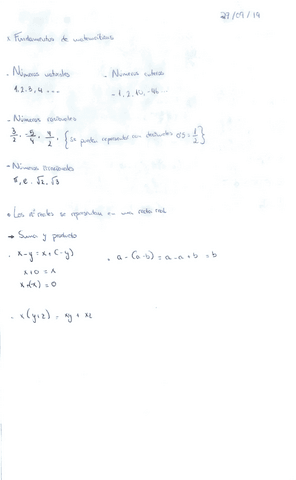 27/09/19
x Fundamentos de matemáticas
. Números naturales
1, 2, 3, 4 ...
- Números enteros
-1, 2, 10, -46 ...
- Números racionales
3/2, -5/4, 4/2, { Se pueden representar con decimales 0'5 = 1/2 }
- Números irracionales
π, e, √2, √3
* Los nº reales se representan en una recta real
→ Suma y producto
. x - y = x + (-y)
x + 0 = x
. a - (a - b) = a - a + b = b
. x(y+z) = xy + xz